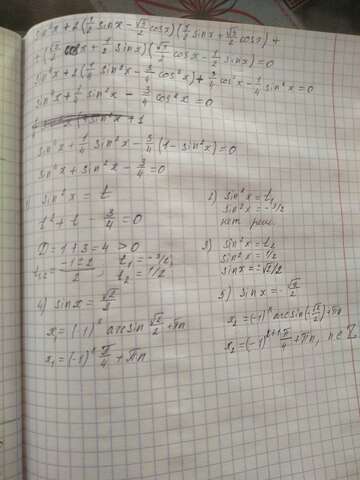 sin⁴x + 2(1/2 sinx - √3/2 cosx)(1/2 sinx + √3/2 cosx) +
+ (√3/2 cosx + 1/2 sinx)(√3/2 cosx - 1/2 sinx) = 0
sin⁴x + 2(1/4 sin²x - 3/4 cos²x) + 3/4 cos²x - 1/4 sin²x = 0
sin⁴x + 1/4 sin²x - 3/4 cos²x = 0
sin⁴x + 1/4 sin²x - 3/4(1 - sin²x) = 0
sin⁴x + sin²x - 3/4 = 0
1) sin²x = t
t² + t - 3/4 = 0
D = 1 + 3 = 4 > 0
t₁,₂ = (-1 ± 2)/2
t₁ = -3/2
t₂ = 1/2
2) sin²x = t₁
sin²x = -3/2
нет реш.
3) sin²x = t₂
sin²x = 1/2
sinx = ±√2/2
4) sinx = √2/2
x₁ = (-1)ⁿ arcsin √2/2 + πn
x₁ = (-1)ⁿ π/4 + πn
5) sinx = -√2/2
x₂ = (-1)ⁿ arcsin(-√2/2) + πn
x₂ = (-1)ⁿ⁺¹ π/4 + πn, n ∈ Z